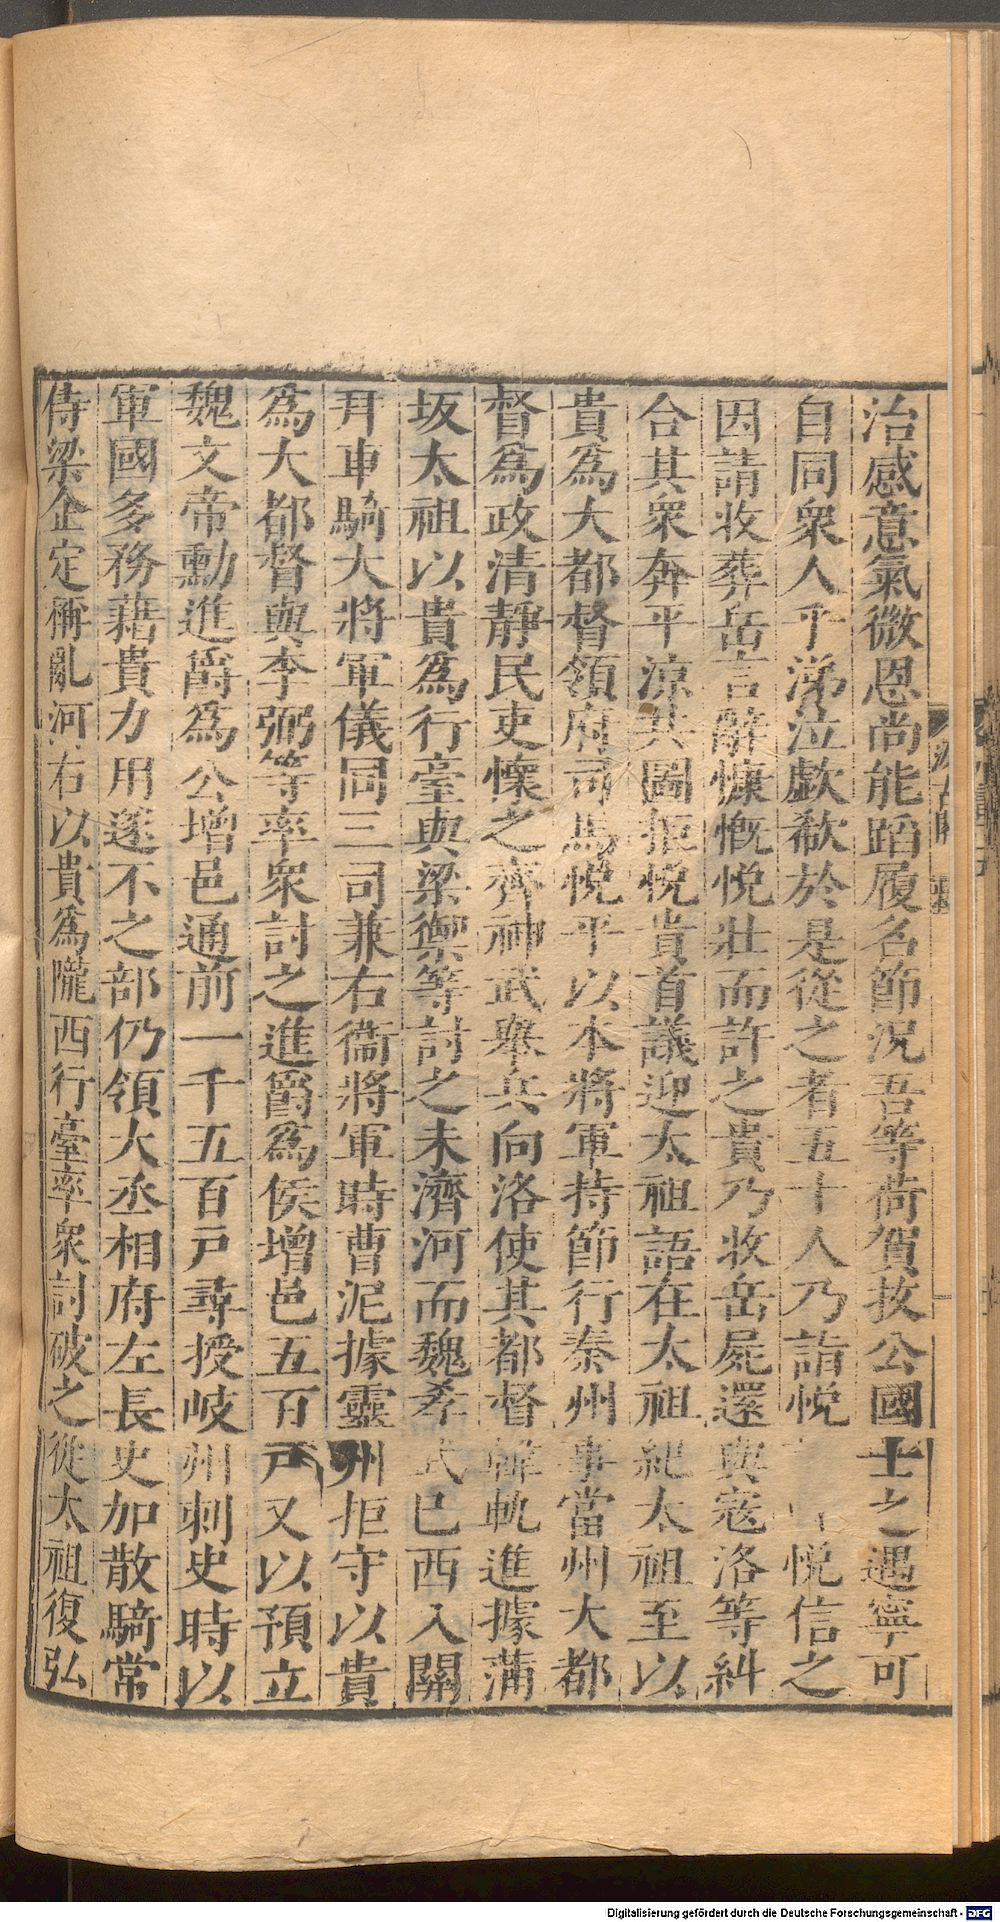 治感意氣微恩尚能蹈履名節況吾等荷賀拔公國士之遇寧可
自同衆人乎涕泣歔欷於是從之者五十人乃詣悅 悅信之
因請收葬岳言辭慷慨悅壯而許之貴乃收岳屍還與寇洛等糾
合其衆奔平涼共圖拒悅貴首議迎太祖語在太祖紀太祖至以
貴爲大都督領府司馬悅平以本將軍持節行秦州事當州大都
督爲政清靜民吏懷之齊神武舉兵向洛使其都督韓軌進據蒲
坂太祖以貴爲行臺與梁禦等討之未濟河而魏孝武已西入關
拜車騎大將軍儀同三司兼右衞將軍時曹泥據靈州拒守以貴
爲大都督與李弼等率衆討之進爵爲侯增邑五百戸又以預立
魏文帝勳進爵爲公增邑通前一千五百戸尋授岐州刺史時以
軍國多務藉貴力用遂不之部仍領大丞相府左長史加散騎常
侍梁企定稱亂河右以貴爲隴西行臺率衆討破之從太祖復弘
Digitalisierung gefördert durch die Deutsche Forschungsgemeinschaft - DFG